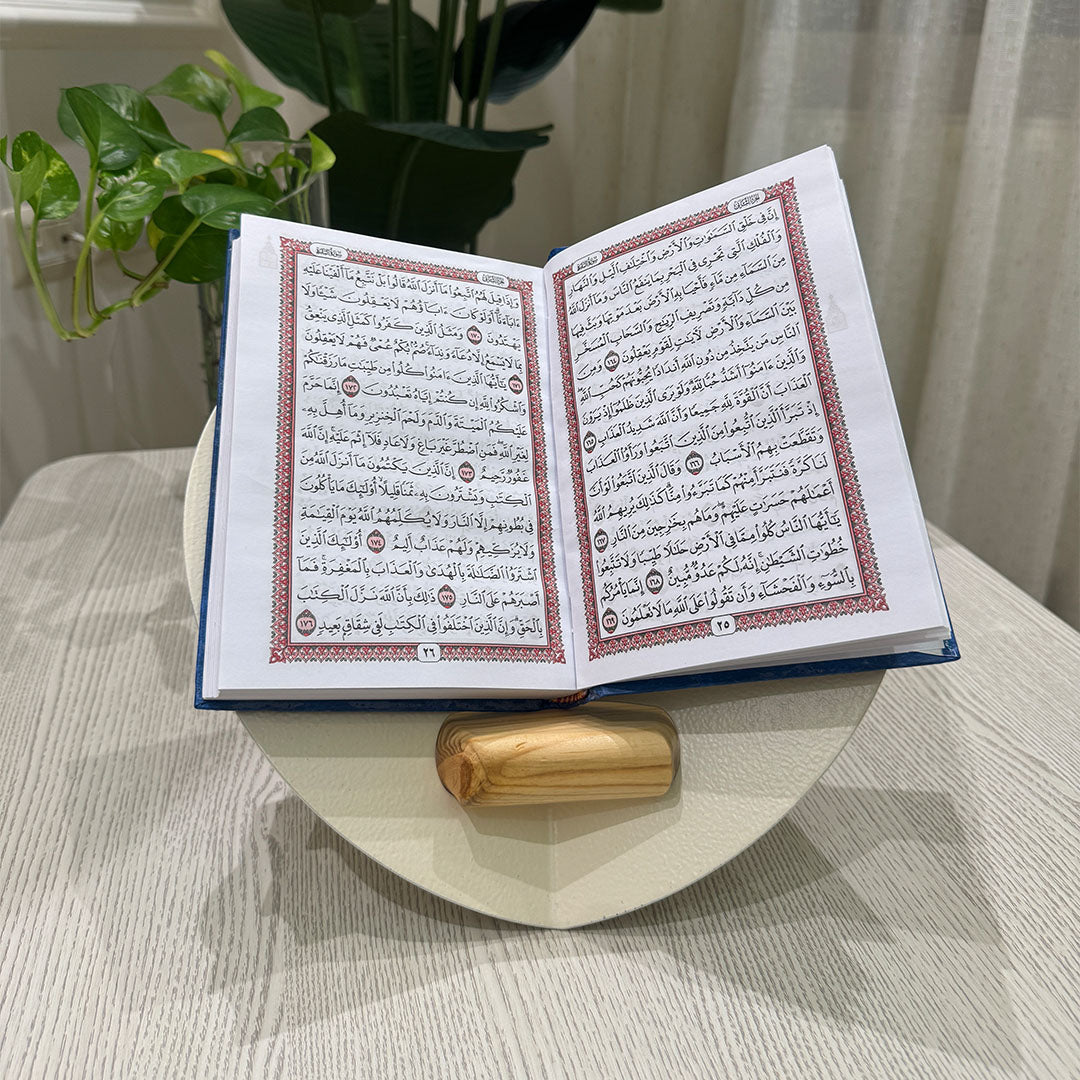 الجزء الثاني
سورة البقرة
إِنَّ فِي خَلْقِ السَّمَٰوَٰتِ وَالْأَرْضِ وَاخْتِلَٰفِ الَّيْلِ وَالنَّهَارِ
وَالْفُلْكِ الَّتِي تَجْرِي فِي الْبَحْرِ بِمَا يَنفَعُ النَّاسَ وَمَا أَنزَلَ اللَّهُ
مِنَ السَّمَاءِ مِن مَّاءٍ فَأَحْيَا بِهِ الْأَرْضَ بَعْدَ مَوْتِهَا وَبَثَّ فِيهَا
مِن كُلِّ دَابَّةٍ وَتَصْرِيفِ الرِّيَٰحِ وَالسَّحَابِ الْمُسَخَّرِ
بَيْنَ السَّمَاءِ وَالْأَرْضِ لَءَايَٰتٍ لِّقَوْمٍ يَعْقِلُونَ ١٦٤ وَمِنَ
النَّاسِ مَن يَتَّخِذُ مِن دُونِ اللَّهِ أَندَادًا يُحِبُّونَهُمْ كَحُبِّ اللَّهِ
وَالَّذِينَ ءَامَنُوا أَشَدُّ حُبًّا لِّلَّهِ وَلَوْ يَرَى الَّذِينَ ظَلَمُوا إِذْ يَرَوْنَ
الْعَذَابَ أَنَّ الْقُوَّةَ لِلَّهِ جَمِيعًا وَأَنَّ اللَّهَ شَدِيدُ الْعَذَابِ ١٦٥
إِذْ تَبَرَّأَ الَّذِينَ اتُّبِعُوا مِنَ الَّذِينَ اتَّبَعُوا وَرَأَوُا الْعَذَابَ
وَتَقَطَّعَتْ بِهِمُ الْأَسْبَابُ ١٦٦ وَقَالَ الَّذِينَ اتَّبَعُوا لَوْ أَنَّ
لَنَا كَرَّةً فَنَتَبَرَّأَ مِنْهُمْ كَمَا تَبَرَّءُوا مِنَّا كَذَٰلِكَ يُرِيهِمُ اللَّهُ
أَعْمَٰلَهُمْ حَسَرَٰتٍ عَلَيْهِمْ وَمَا هُم بِخَٰرِجِينَ مِنَ النَّارِ ١٦٧
يَٰأَيُّهَا النَّاسُ كُلُوا مِمَّا فِي الْأَرْضِ حَلَٰلًا طَيِّبًا وَلَا تَتَّبِعُوا
خُطُوَٰتِ الشَّيْطَٰنِ إِنَّهُ لَكُمْ عَدُوٌّ مُّبِينٌ ١٦٨ إِنَّمَا يَأْمُرُكُم
بِالسُّوءِ وَالْفَحْشَاءِ وَأَن تَقُولُوا عَلَى اللَّهِ مَا لَا تَعْلَمُونَ ١٦٩
٢٥
الجزء الثاني
سورة البقرة
وَإِذَا قِيلَ لَهُمُ اتَّبِعُوا مَا أَنزَلَ اللَّهُ قَالُوا بَلْ نَتَّبِعُ مَا أَلْفَيْنَا عَلَيْهِ
ءَابَاءَنَا أَوَلَوْ كَانَ ءَابَاؤُهُمْ لَا يَعْقِلُونَ شَيْئًا وَلَا
يَهْتَدُونَ ١٧٠ وَمَثَلُ الَّذِينَ كَفَرُوا كَمَثَلِ الَّذِي يَنْعِقُ
بِمَا لَا يَسْمَعُ إِلَّا دُعَاءً وَنِدَاءً صُمٌّ بُكْمٌ عُمْيٌ فَهُمْ لَا يَعْقِلُونَ
١٧١ يَٰأَيُّهَا الَّذِينَ ءَامَنُوا كُلُوا مِن طَيِّبَٰتِ مَا رَزَقْنَٰكُمْ
وَاشْكُرُوا لِلَّهِ إِن كُنتُمْ إِيَّاهُ تَعْبُدُونَ ١٧٢ إِنَّمَا حَرَّمَ
عَلَيْكُمُ الْمَيْتَةَ وَالدَّمَ وَلَحْمَ الْخِنزِيرِ وَمَا أُهِلَّ بِهِ
لِغَيْرِ اللَّهِ فَمَنِ اضْطُرَّ غَيْرَ بَاغٍ وَلَا عَادٍ فَلَا إِثْمَ عَلَيْهِ إِنَّ اللَّهَ
غَفُورٌ رَّحِيمٌ ١٧٣ إِنَّ الَّذِينَ يَكْتُمُونَ مَا أَنزَلَ اللَّهُ مِنَ
الْكِتَٰبِ وَيَشْتَرُونَ بِهِ ثَمَنًا قَلِيلًا أُولَٰئِكَ مَا يَأْكُلُونَ
فِي بُطُونِهِمْ إِلَّا النَّارَ وَلَا يُكَلِّمُهُمُ اللَّهُ يَوْمَ الْقِيَٰمَةِ
وَلَا يُزَكِّيهِمْ وَلَهُمْ عَذَابٌ أَلِيمٌ ١٧٤ أُولَٰئِكَ الَّذِينَ
اشْتَرَوُا الضَّلَٰلَةَ بِالْهُدَىٰ وَالْعَذَابَ بِالْمَغْفِرَةِ فَمَا
أَصْبَرَهُمْ عَلَى النَّارِ ١٧٥ ذَٰلِكَ بِأَنَّ اللَّهَ نَزَّلَ الْكِتَٰبَ
بِالْحَقِّ وَإِنَّ الَّذِينَ اخْتَلَفُوا فِي الْكِتَٰبِ لَفِي شِقَاقٍ بَعِيدٍ ١٧٦
٢٦